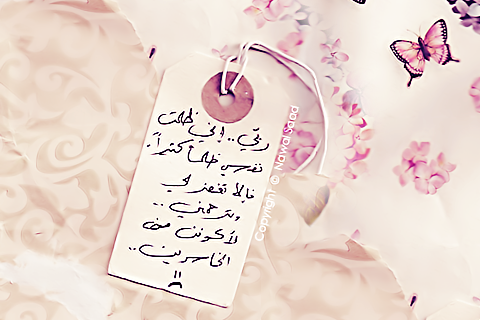 ربّي.. إني ظلمت
نفسي ظلماً كثيراً..
فإلا تغفر لي
وترحمني..
لأكونن من
الخاسرين..
Copyright © Nawal Saad